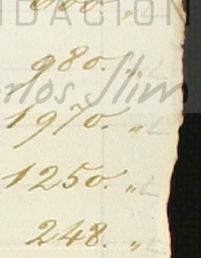 DACIÓN
980. „
Carlos Slim
1970. „
1250. „
248. „